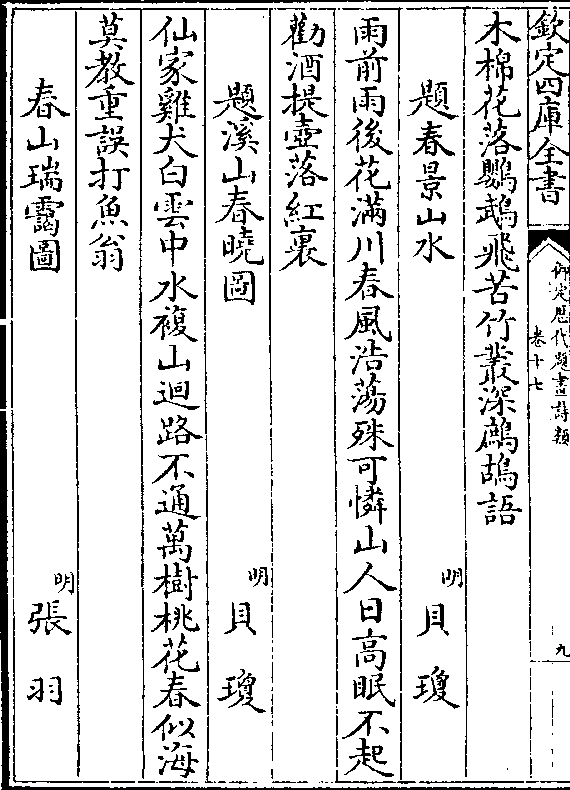 欽定四庫全書
御定歷代題畫詩類
卷十七
九
木棉花落鸚鵡飛苦竹叢深鷓鴣語
題春景山水 明 貝瓊
雨前雨後花滿川春風浩蕩殊可憐山人日高眠不起
勸酒提壺落紅裏
題溪山春曉圖 明 貝瓊
仙家雞犬白雲中水複山迴路不通萬樹桃花春似海
莫教重誤打魚翁
春山瑞靄圖 明 張羽